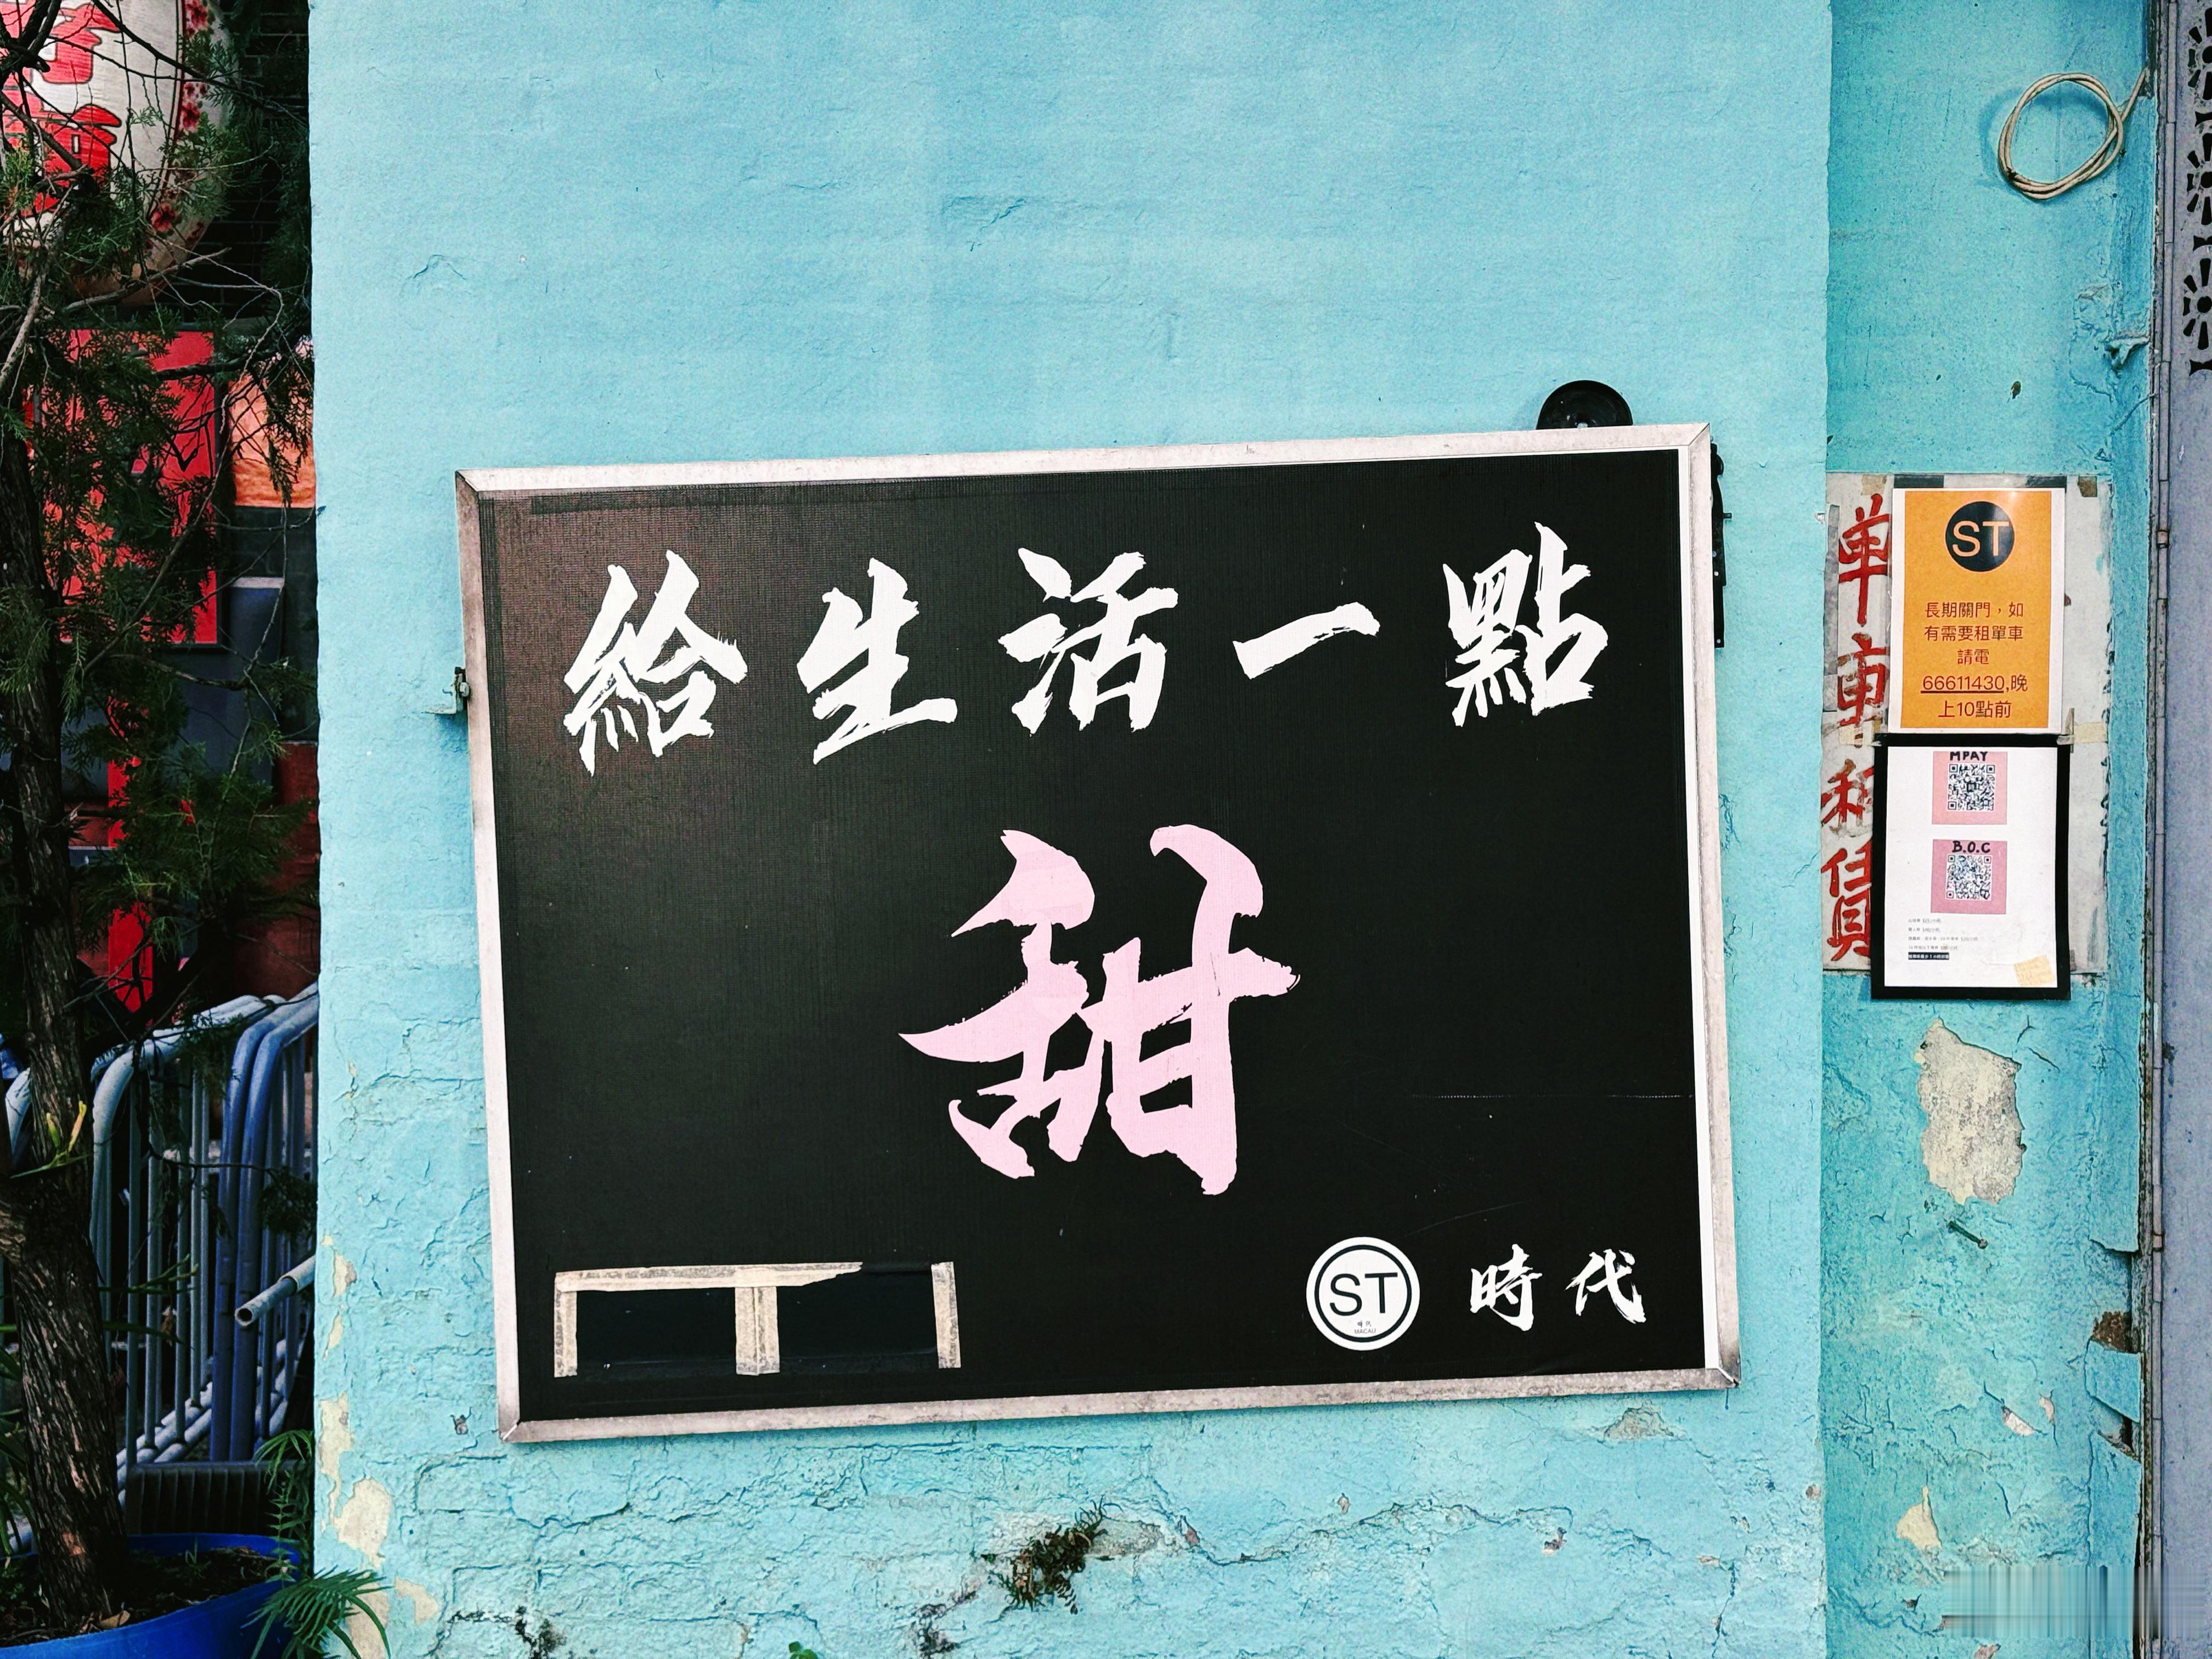 給生活一點
甜
ST
時代
MACAU
時代
單車租賃
ST
長期關門，如
有需要租單車
請電
66611430,晚
上10點前
MPAY
B.O.C